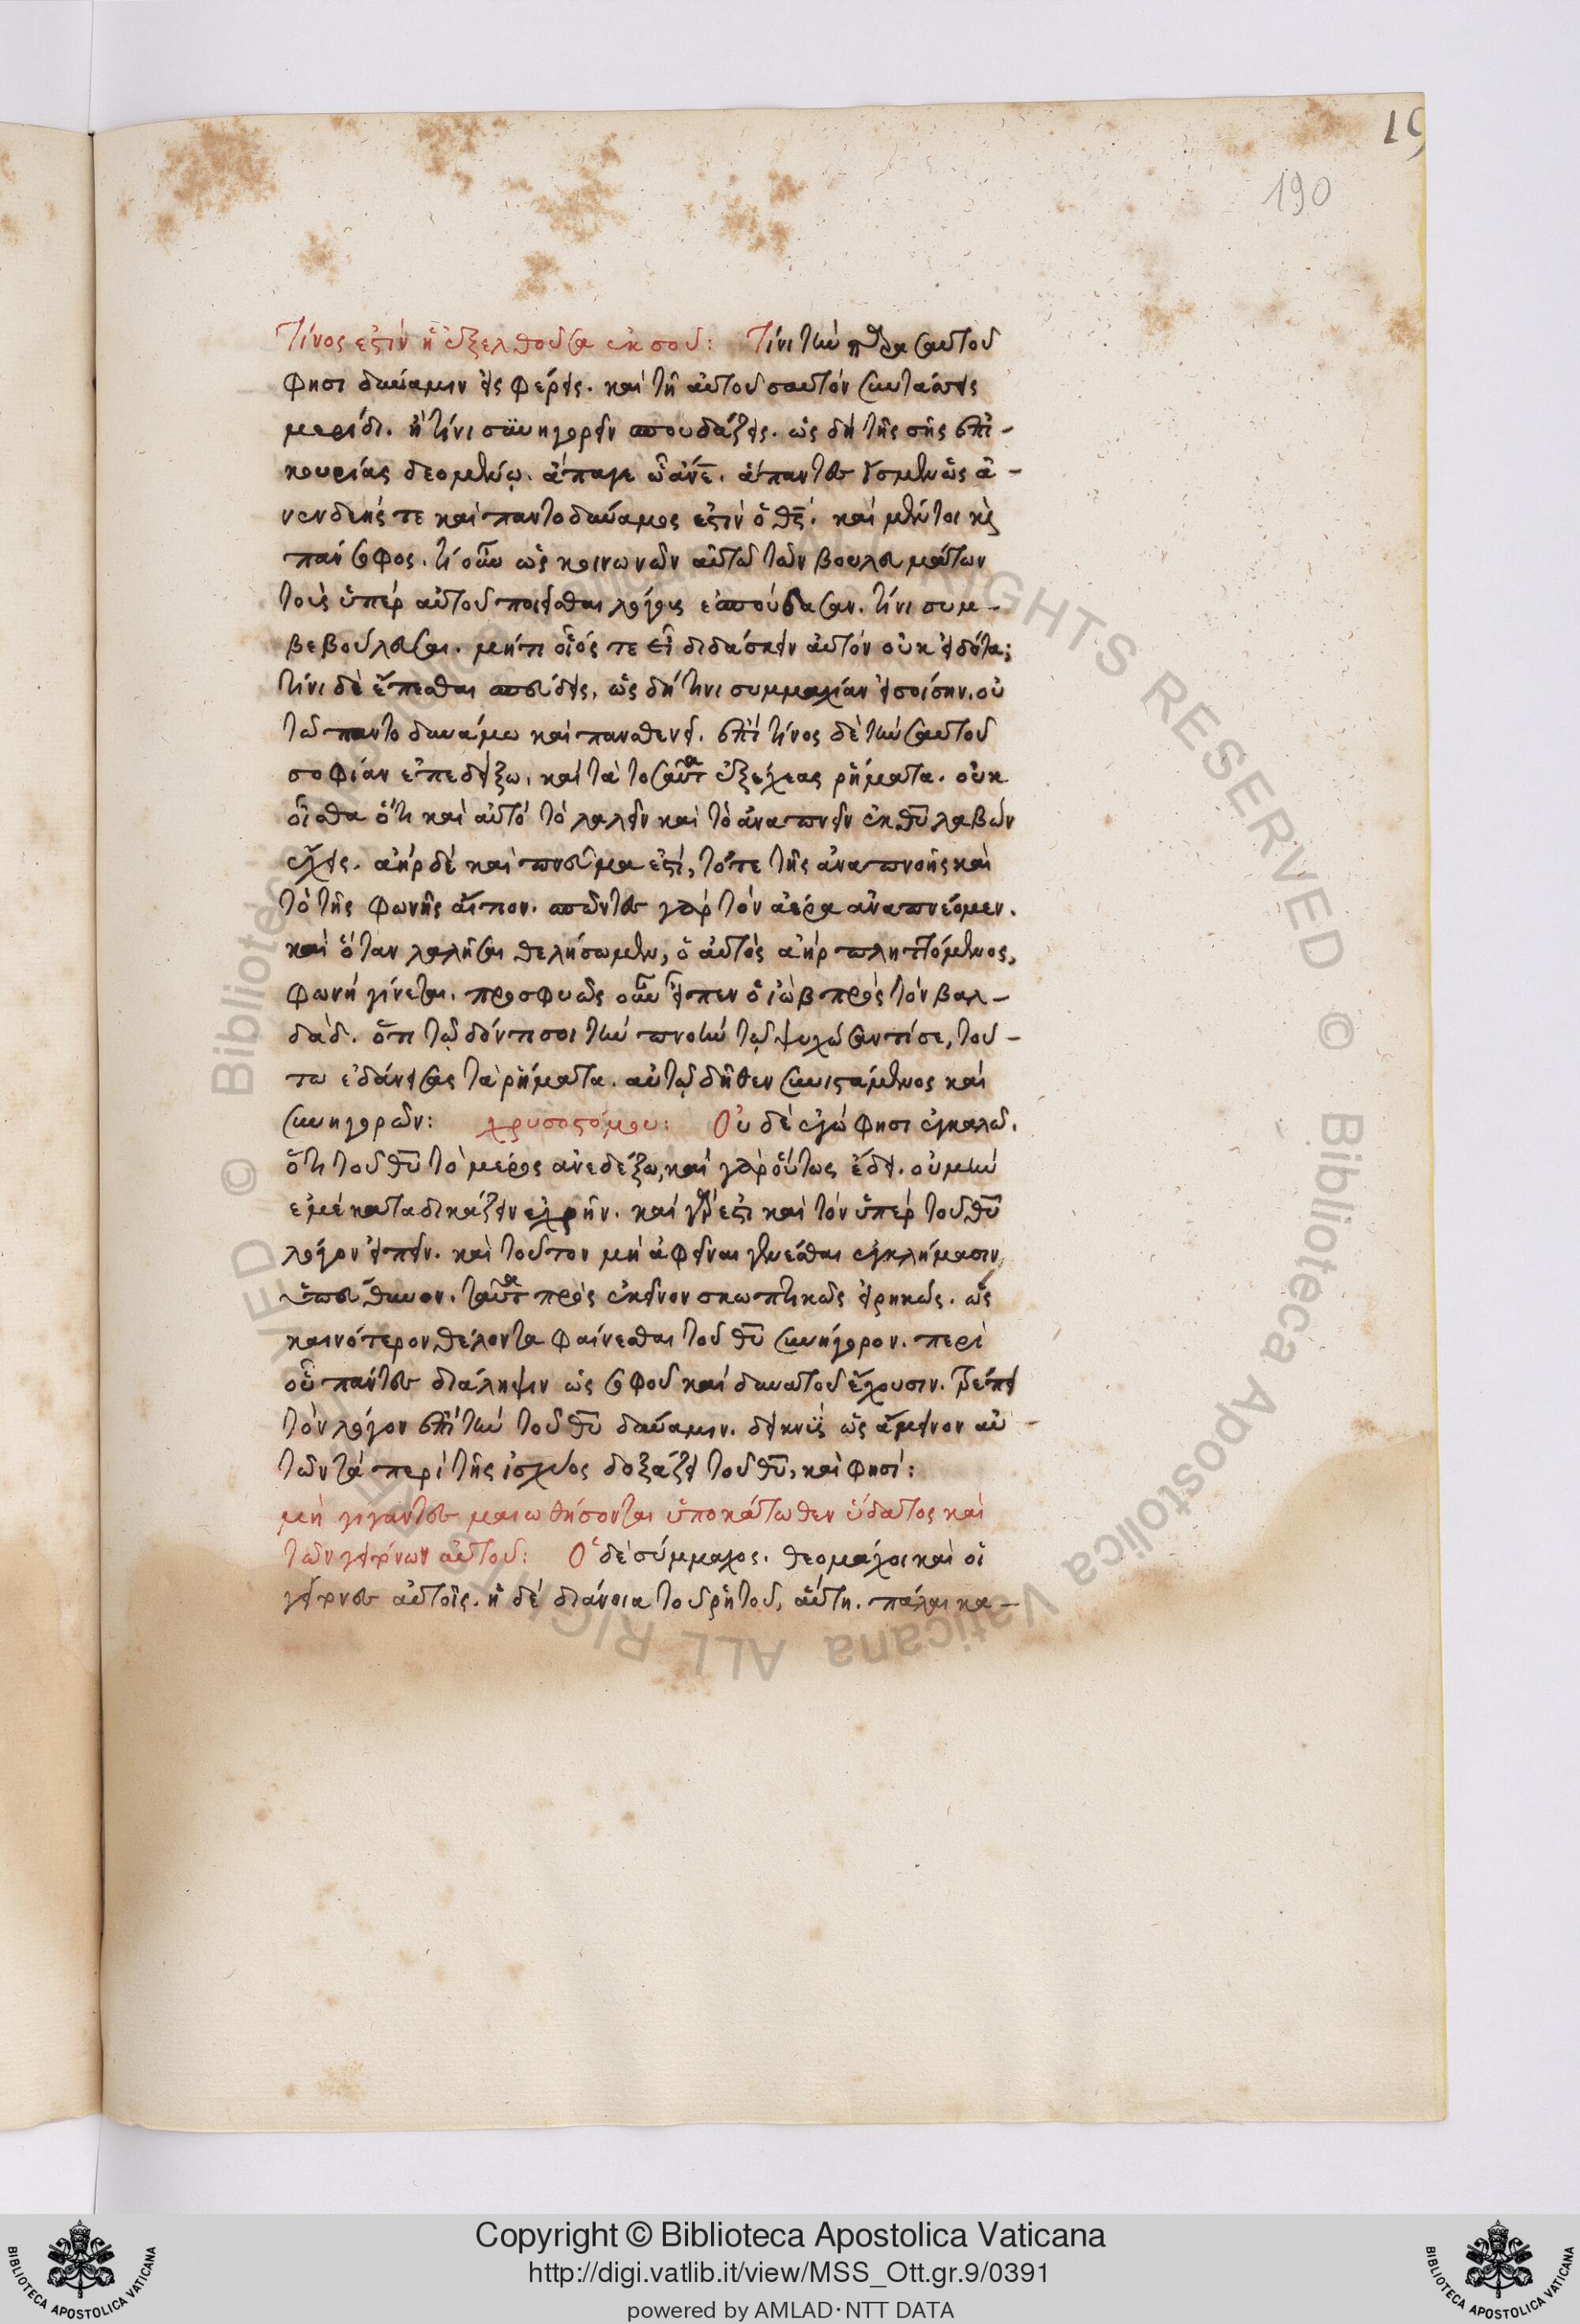 19
190
Τίνος ἐστὶν ἡ ἐξελθοῦσα ἐκ σοῦ: Τίνι τὴν παρὰ σαυτοῦ
φησι δύναμιν εἰσφέρεις. καὶ τῇ αὐτοῦ σαυτὸν συντάττεις
μερίδι. ἢ τίνι συνηγορεῖν σπουδάζεις. ὡς δὴ τῆς σῆς ἐπι-
κουρίας δεομένῳ. ἄπαγε ὦ ἄνε. ἅπαντες ἴσμεν ὡς ἀ-
νενδεής τε καὶ παντοδύναμος ἐστὶν ὁ θς. καὶ μέντοι κỳ
πάνσοφος. τί οὖν ὡς κοινωνῶν αὐτῷ τῶν βουλευμάτων
τοὺς ὑπὲρ αὐτοῦ ποιεῖσθαι λόγους ἐσπούδασας. τίνι συμ-
βεβούλευσαι. μή τι οἷός τε εἶ διδάσκειν αὐτὸν οὐκ εἰδότα;
τίνι δὲ ἕπεσθαι σπεύδεις, ὡς δή τινι συμμαχίαν εἰσοίσην. οὐ
τῷ παντοδυνάμω καὶ πανσθενεῖ. ἐπὶ τίνος δὲ τὴν σαυτοῦ
σοφίαν ἐπεδείξω. καὶ τὰ τοσαῦτα ἐξέχεας ῥήματα. οὐκ
οἶσθα ὅτι καὶ αὐτὸ τὸ λαλεῖν καὶ τὸ ἀναπνεῖν ἐκ θυ λαβὼν
ἔχεις. ἀὴρ δὲ καὶ πνεῦμα ἐστί, τό τε τῆς ἀναπνοῆς καὶ
τὸ τῆς φωνῆς αἴτιον. σπῶντες γὰρ τὸν ἀέρα ἀναπνέομεν.
καὶ ὅταν λαλῆσαι θελήσωμεν, ὁ αὐτὸς ἀὴρ πληττόμενος,
φωνὴ γίνεται. προσφυῶς οὖν εἶπεν ὁ ἰὼβ πρὸς τὸν βαλ-
δάδ. ὅτι τῷ δόντι σοι τὴν πνοὴν τῷ ψυχώσαντί σε, τού-
τω ἐδάνεισας τὰ ῥήματα. αὐτῷ δῆθεν συνιστάμενος καὶ
συνηγορῶν: χρυσοστόμου: Οὐδὲ ἐγώ φησι ἐγκαλῶ.
ὅτι τοῦ θυ τὸ μέρος ἀνεδέξω, καὶ γὰρ οὕτως ἔδει. οὐ μὴν
ἐμὲ καταδικάζειν ἐχρῆν. καὶ γὰρ ἔστι καὶ τὸν ὑπὲρ τοῦ θυ
λόγον εἰπεῖν. καὶ τοῦτον μὴ ἀφεῖναι γενέσθαι ἐγκλήμασιν
ὑπεύθυνον. ταῦτα πρὸς ἐκεῖνον σκωπτικῶς εἰρηκώς. ὡς
καινότερον θέλοντα φαίνεσθαι τοῦ θυ συνήγορον. περὶ
οὗ πάντες διάληψιν ὡς σοφοῦ καὶ δυνατοῦ ἔχουσιν. τρέπει
τὸν λόγον ἐπὶ τὴν τοῦ θυ δύναμιν. δεικνὺς ὡς ἄμεινον αὐ-
τῶν τὰ περὶ τῆς ἰσχύος δοξάζει τοῦ θυ, καὶ φησί:
μὴ γίγαντες μαιωθήσονται ὑποκάτωθεν ὕδατος καὶ
τῶν γειτόνων αὐτοῦ: Ὁ δὲ σύμμαχος. θεομάχοι καὶ οἱ
γείτονες αὐτοῖς. ἡ δὲ διάνοια τοῦ ῥητοῦ, αὕτη. πάλαι κα-
Copyright © Biblioteca Apostolica Vaticana
http://digi.vatlib.it/view/MSS_Ott.gr.9/0391
powered by AMLAD·NTT DATA
BIBLIOTECA APOSTOLICA VATICANA
BIBLIOTECA APOSTOLICA VATICANA
© Biblioteca Apostolica Vaticana ALL RIGHTS RESERVED